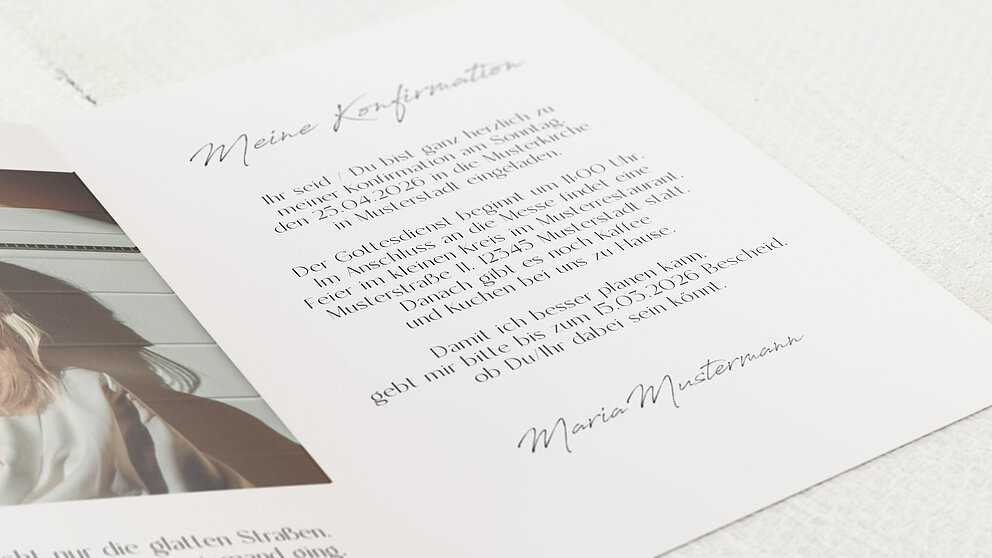 Meine Konfirmation
Ihr seid / Du bist ganz herzlich zu
meiner Konfirmation am Sonntag,
den 25.04.2026 in die Musterkirche
in Musterstadt eingeladen.
Der Gottesdienst beginnt um 11:00 Uhr.
Im Anschluss an die Messe findet eine
Feier im kleinen Kreis im Musterrestaurant.
Musterstraße 11, 12345 Musterstadt statt.
Danach gibt es noch Kaffee
und Kuchen bei uns zu Hause.
Damit ich besser planen kann.
gebt mir bitte bis zum 15.03.2026 Bescheid.
ob Du/Ihr dabei sein könnt.
Maria Mustermann
nur die glatten Straßen.
ging.